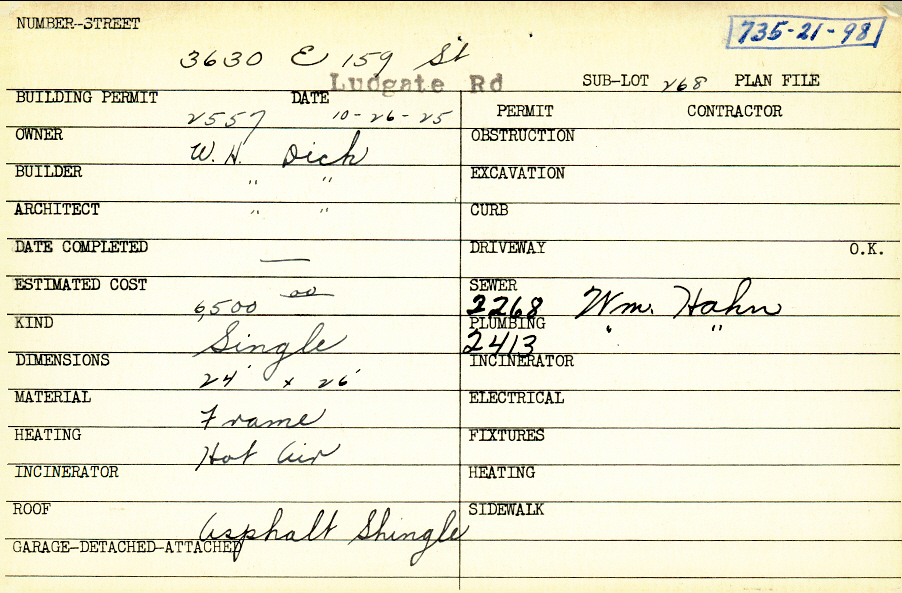 NUMBER--STREET
735-21-98
3630 E 159 St
Ludgate Rd
SUB-LOT 268 PLAN FILE
BUILDING PERMIT 2557 DATE 10-26-25
PERMIT CONTRACTOR
OWNER W. H. Dick
OBSTRUCTION
BUILDER " "
EXCAVATION
ARCHITECT " "
CURB
DATE COMPLETED —
DRIVEWAY O.K.
ESTIMATED COST 6,500 00
SEWER 2268 Wm. Hahn
KIND Single
PLUMBING 2413 " "
DIMENSIONS 24' x 26'
INCINERATOR
MATERIAL Frame
ELECTRICAL
HEATING Hot Air
FIXTURES
INCINERATOR
HEATING
ROOF Asphalt Shingle
SIDEWALK
GARAGE-DETACHED-ATTACHED